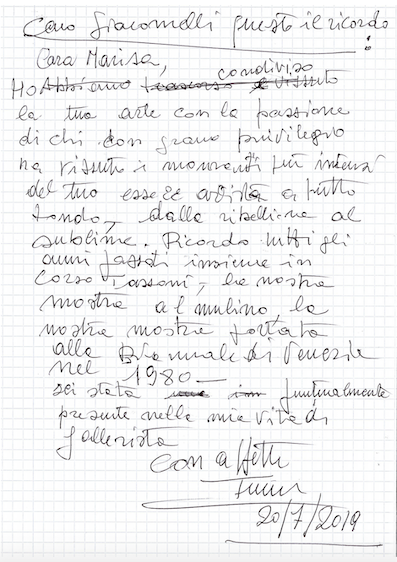 Caro Giacomelli questo il ricordo:
Cara Marisa,
Ho Abbiamo trascorso condiviso e vissuto
la tua arte con la passione
di chi con grano privilegio
ha vissuto i momenti più intensi
del tuo essere artista a tutto
tondo, dalla ribellione al
sublime. Ricordo tutti gli
anni passati insieme in
Corso Tassoni, la nostra
mostra al mulino, la
nostra mostra portata
alla Biennale di Venezia
nel 1980-
sei stata puntualmente
presente nella mia vita di
gallerista
con affetto
20/7/2019